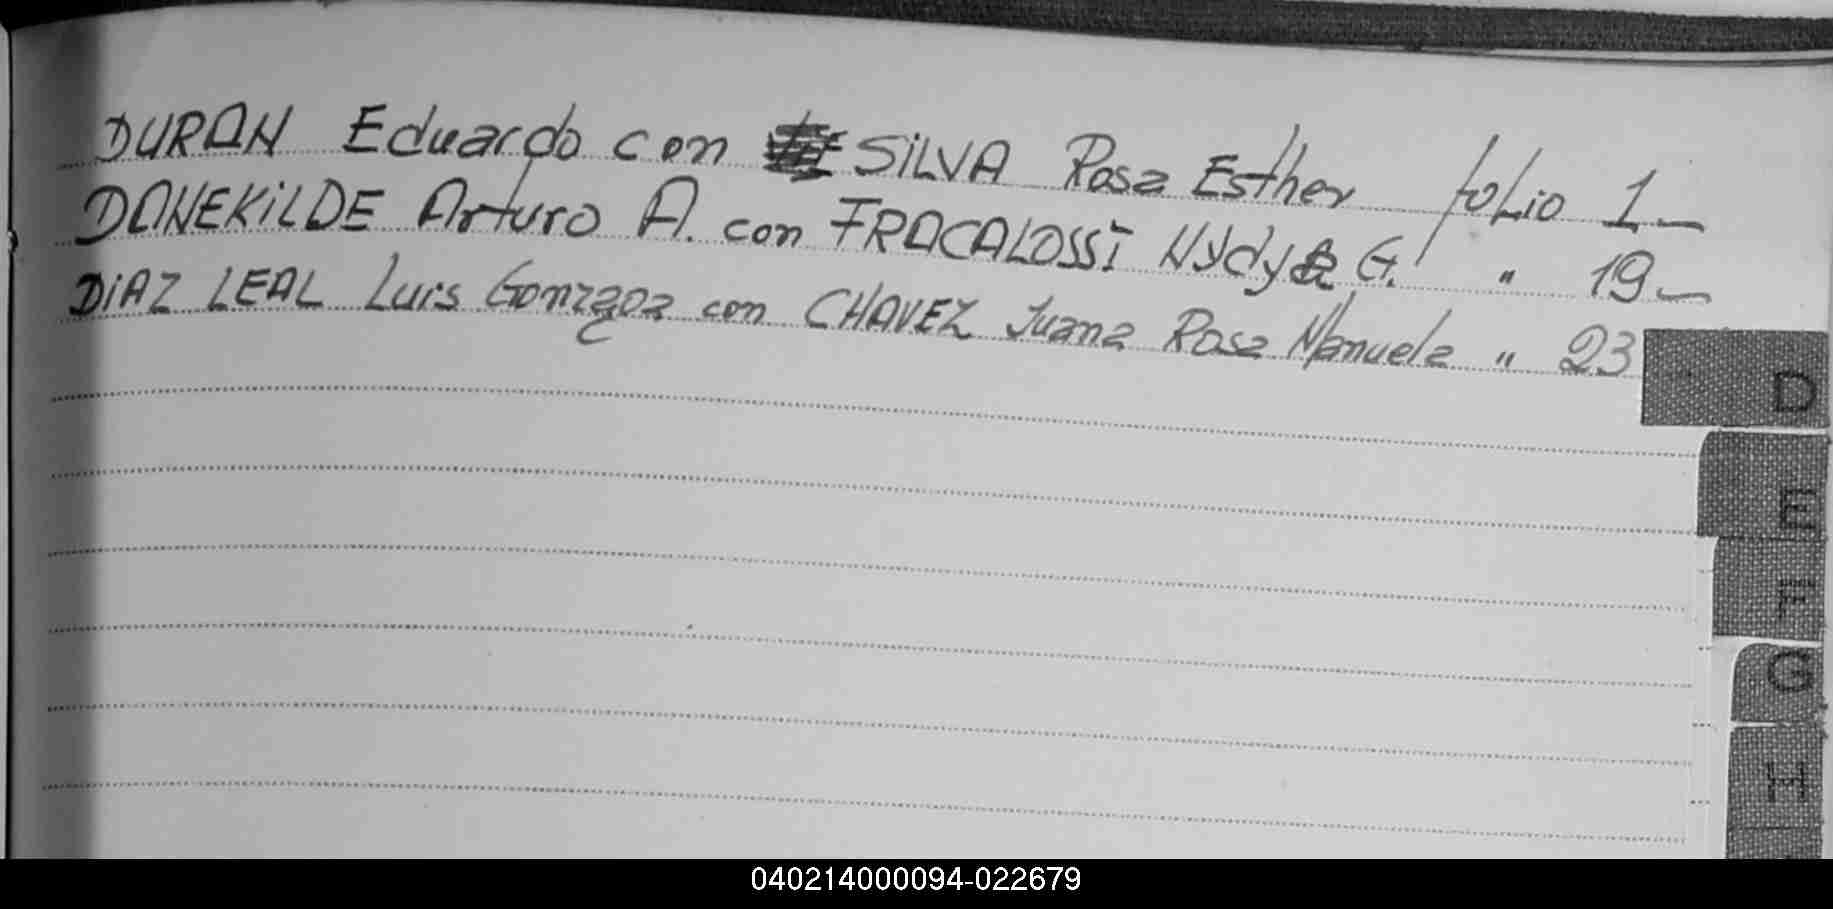 DURAN Eduardo con SILVA Rosa Esther folio 1_
DANEKILDE Arturo A. con FRACALOSSI Nydya G. " 19_
DIAZ LEAL Luis Gonzaga con CHAVEZ Juana Rosa Manuela " 23
D
E
F
G
H
040214000094-022679